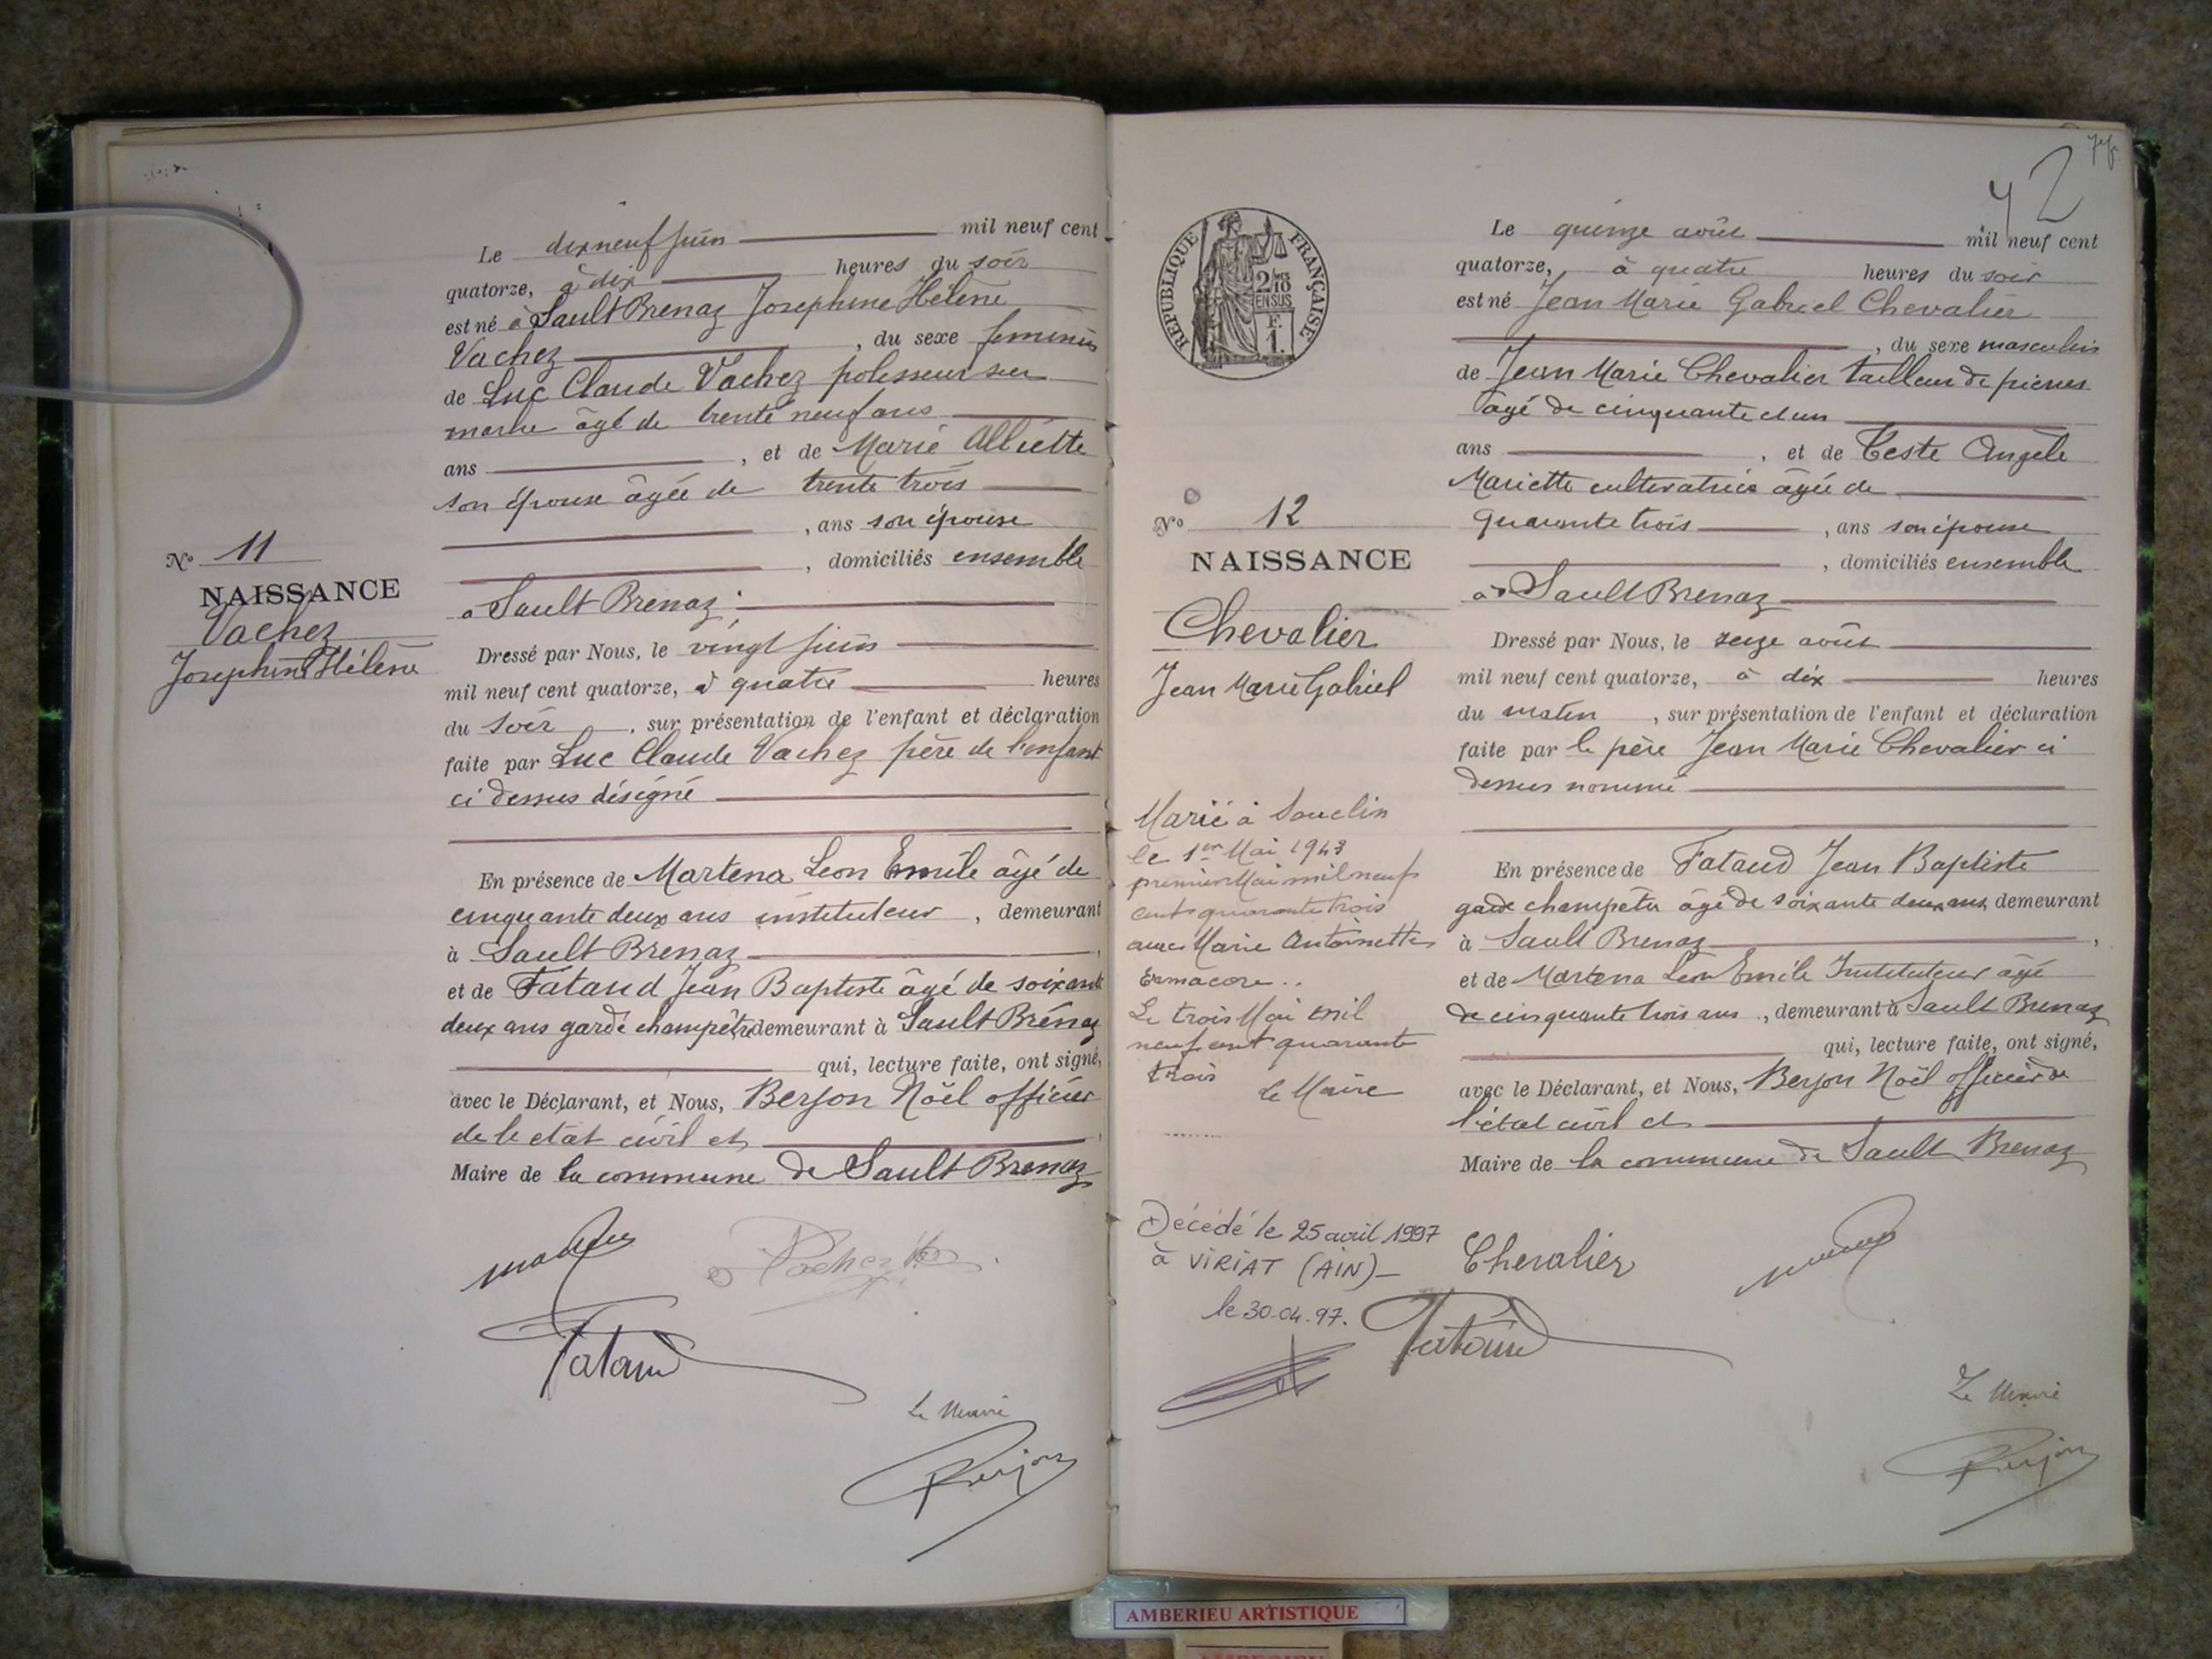 Le dix neuf juin mil neuf cent
quatorze, à dix heures du soir
est né à Sault Brenaz Josephine Hélène
Vachez, du sexe feminin
de Luc Claude Vachez polisseur sur
marbre âgé de trente neuf ans
ans, et de Marie Alliette
son épouse âgée de trente trois
, ans son épouse
, domiciliés ensemble
à Sault Brenaz
Dressé par Nous, le vingt juin
mil neuf cent quatorze, à quatre heures
du soir, sur présentation de l'enfant et déclaration
faite par Luc Claude Vachez père de l'enfant
ci dessus désigné
En présence de Martena Leon Emile âgé de
cinquante deux ans instituteur, demeurant
à Sault Brenaz,
et de Fataud Jean Baptiste âgé de soixante
deux ans garde champêtre demeurant à Sault Brénaz
qui, lecture faite, ont signé,
avec le Déclarant, et Nous, Berjon Noël officier
de le etat civil et
Maire de la commune de Sault Brenaz
Vachez
Fataud
Le Maire
Berjon
N° 11
NAISSANCE
Vachez
Josephine Hélène
42
RÉPUBLIQUE FRANÇAISE
2/10
EN SUS
F.
1.
N° 12
NAISSANCE
Chevalier
Jean Marie Gabriel
Marié à Souclin
le 1er Mai 1943
premier Mai mil neuf
cent quarante trois
avec Marie Antoinette
Ermacore..
Le trois Mai mil
neuf cent quarante
trois
Le Maire
Décédé le 25 avril 1997
à VIRIAT (AIN)
le 30.04.97.
Le quinze août mil neuf cent
quatorze, à quatre heures du soir
est né Jean Marie Gabriel Chevalier
, du sexe masculin
de Jean Marie Chevalier tailleur de pierres
âgé de cinquante et un
ans, et de Teste Angèle
Mariette cultivatrice âgée de
quarante trois, ans son épouse
, domiciliés ensemble
à Sault Brenaz
Dressé par Nous, le seize août
mil neuf cent quatorze, à dix heures
du matin, sur présentation de l'enfant et déclaration
faite par le père Jean Marie Chevalier ci
dessus nommé
En présence de Fataud Jean Baptiste
garde champêtre âgé de soixante deux ans, demeurant
à Sault Brenaz,
et de Martena Leon Emile Instituteur âgé
de cinquante trois ans, demeurant à Sault Brenaz
qui, lecture faite, ont signé,
avec le Déclarant, et Nous, Berjon Noël officier de
l'état civil et
Maire de la commune de Sault Brenaz
Chevalier
Fataud
Le Maire
Berjon
AMBERIEU ARTISTIQUE